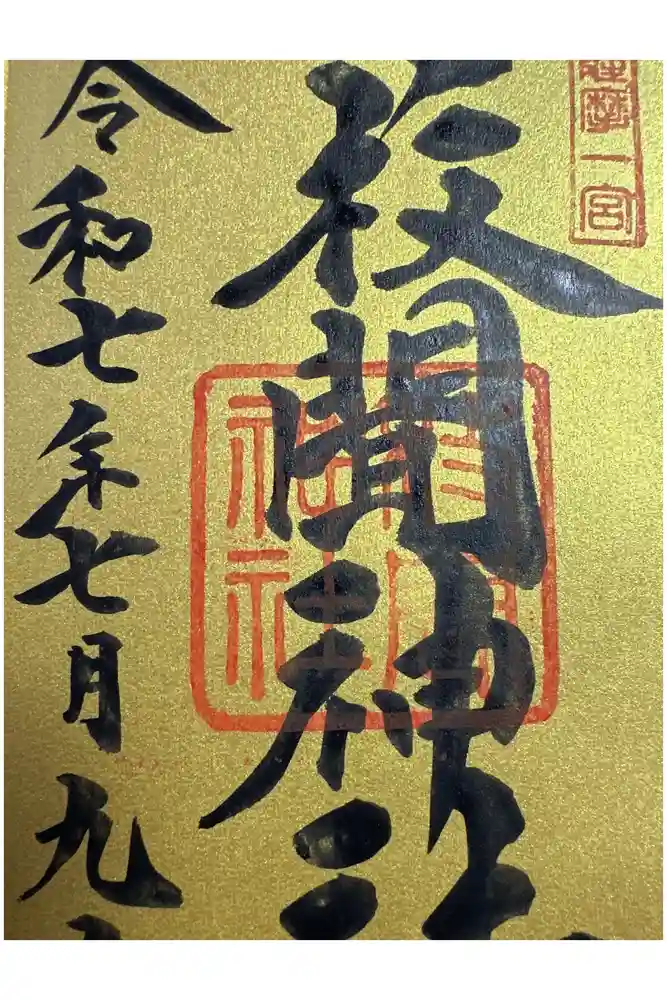 薩摩一宮
枚聞神社
枚聞
神社
令和七年七月九日